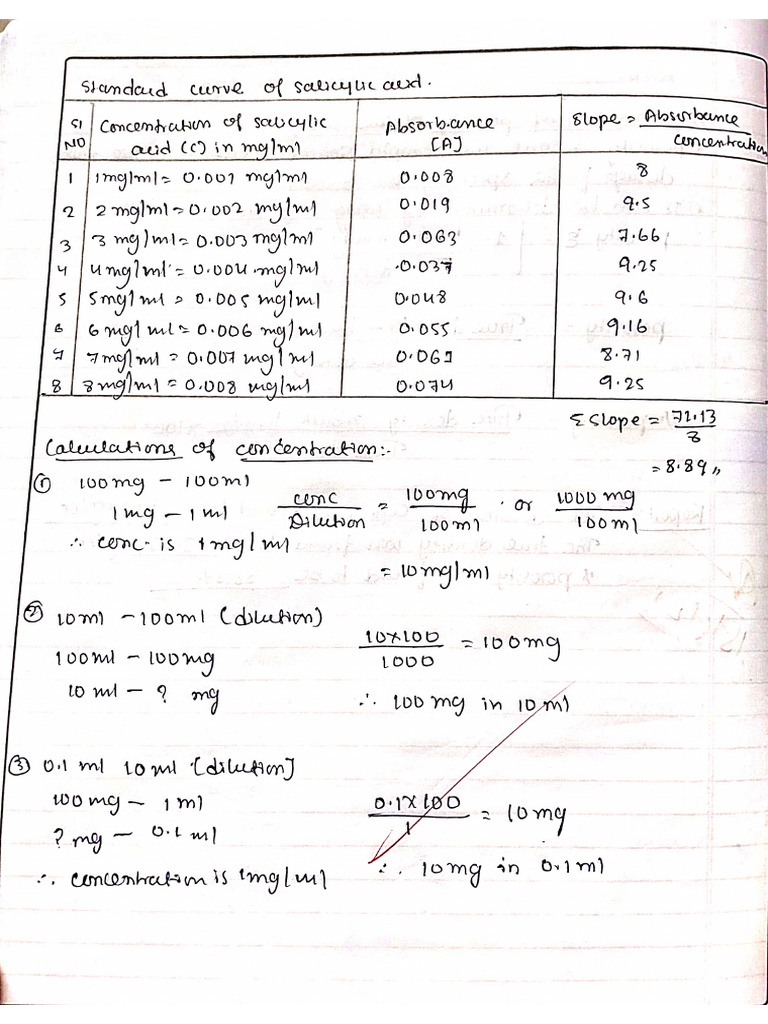 Standard curve of salicylic acid.
Sl NO | Concentration of salicylic acid (C) in mg/ml | Absorbance [A] | Slope = Absorbance / Concentration
1 | 1mg/ml = 0.001 mg/ml | 0.008 | 8
2 | 2mg/ml = 0.002 mg/ml | 0.019 | 9.5
3 | 3 mg/ml = 0.003 mg/ml | 0.063 | 7.66
4 | 4mg/ml = 0.004 mg/ml | 0.037 | 9.25
5 | 5mg/ml = 0.005 mg/ml | 0.048 | 9.6
6 | 6 mg/ml = 0.006 mg/ml | 0.055 | 9.16
7 | 7mg/ml = 0.007 mg/ml | 0.061 | 8.71
8 | 8mg/ml = 0.008 mg/ml | 0.074 | 9.25
Σ Slope = 71.13 / 8
= 8.89 "
Calculations of concentration:-
① 100mg - 100ml
1mg - 1ml
∴ conc. is 1mg/ml
conc / Dilution = 100mg / 100ml . or 1000 mg / 100ml
= 10mg/ml
② 10ml - 100ml (dilution)
100ml - 100mg
10 ml - ? mg
10×100 / 1000 = 100mg
∴ 100 mg in 10ml
③ 0.1 ml 10ml [dilution]
100mg - 1ml
? mg - 0.1 ml
∴ concentration is 1mg/ml
0.1×100 / 1 = 10mg
∴ 10mg in 0.1ml